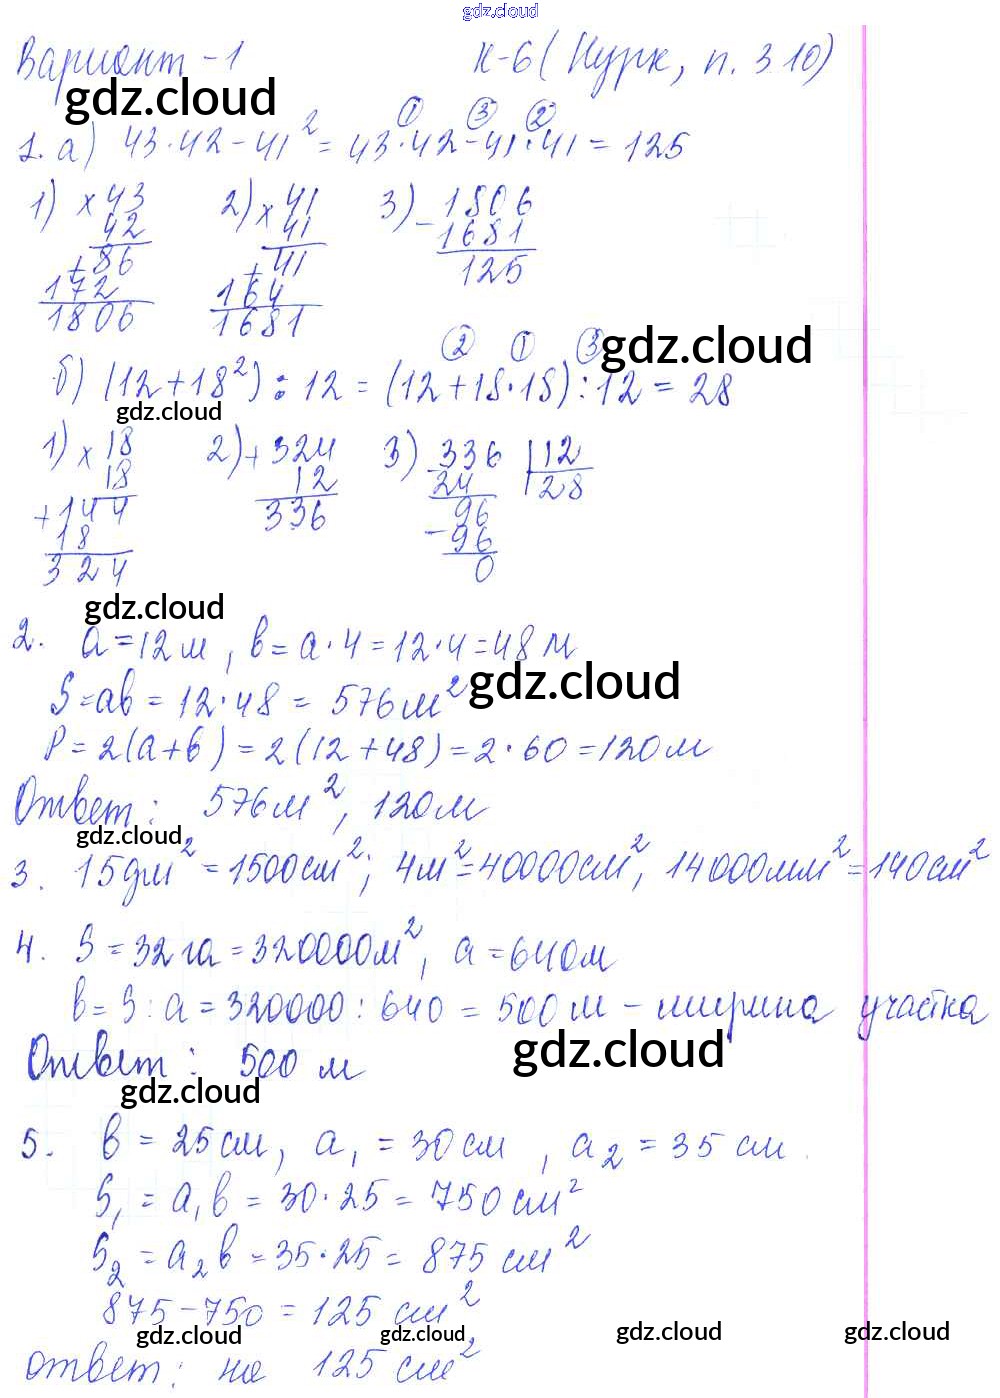 gdz.cloud
Вариант -1 К-6 (Нурк, п. 3.10)
gdz.cloud
① ③ ②
1. а) 43·42-41² = 43·42-41·41 = 125
1) ×43 2) ×41 3) -1806
42 41 1681
+86 +41 125
172 164
1806 1681
② ① ③ gdz.cloud
б) (12+18²) : 12 = (12+18·18) : 12 = 28
gdz.cloud
1) ×18 2) +324 3) 336 |12
18 12 24 28
+144 336 96
18 -96
324 0
gdz.cloud
2. a = 12 м, b = a·4 = 12·4 = 48 м
S = ab = 12·48 = 576 м² gdz.cloud
P = 2(a+b) = 2(12+48) = 2·60 = 120 м
Ответ: 576 м², 120 м
gdz.cloud
3. 15 дм² = 1500 см²; 4 м² = 40000 см², 14000 мм² = 140 см²
4. S = 32 га = 320000 м², a = 640 м
b = S : a = 320000 : 640 = 500 м - ширина участка
Ответ: 500 м gdz.cloud
gdz.cloud
5. b = 25 см, a₁ = 30 см, a₂ = 35 см.
S₁ = a₁b = 30·25 = 750 см²
S₂ = a₂b = 35·25 = 875 см²
875-750 = 125 см²
gdz.cloud gdz.cloud gdz.cloud gdz.cloud
ответ: на 125 см²